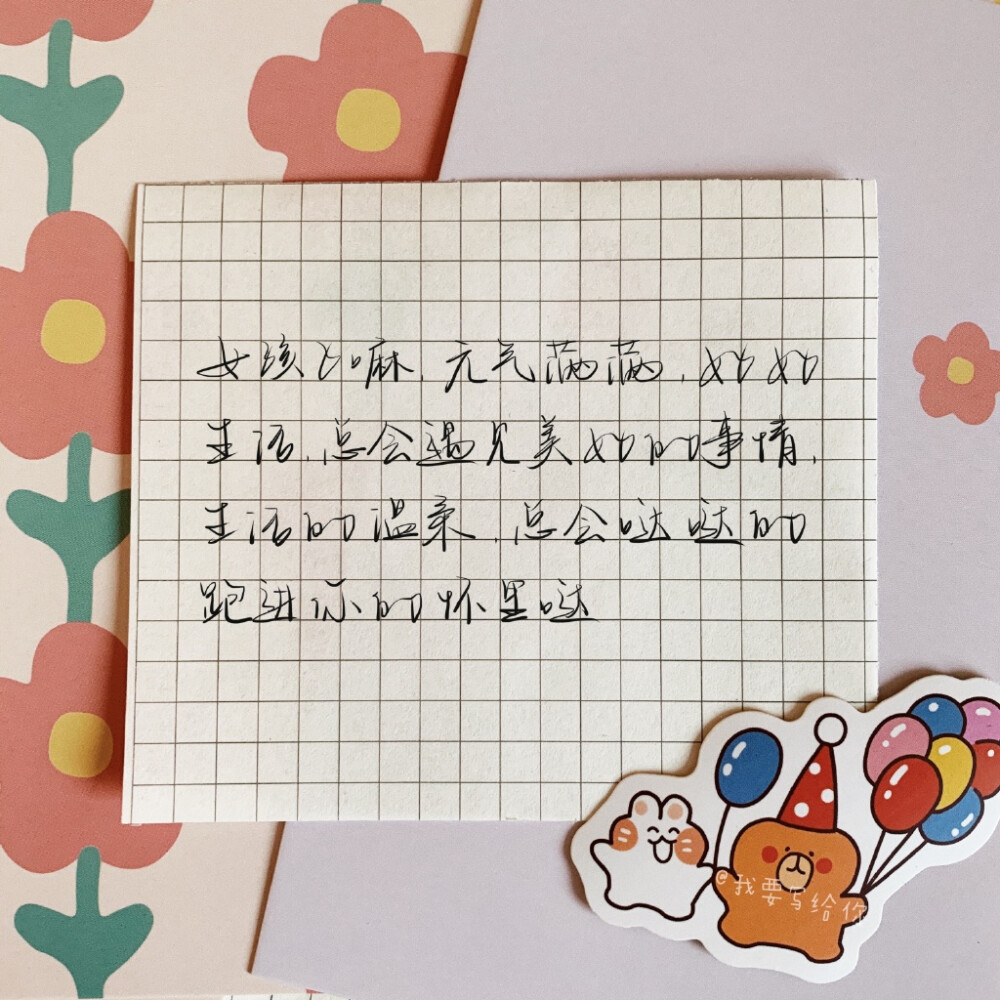 女孩子嘛,元气满满,好好
生活,总会遇见美好的事情,
生活的温柔,总会哒哒的
跑进你的怀里哒
@我要写给你